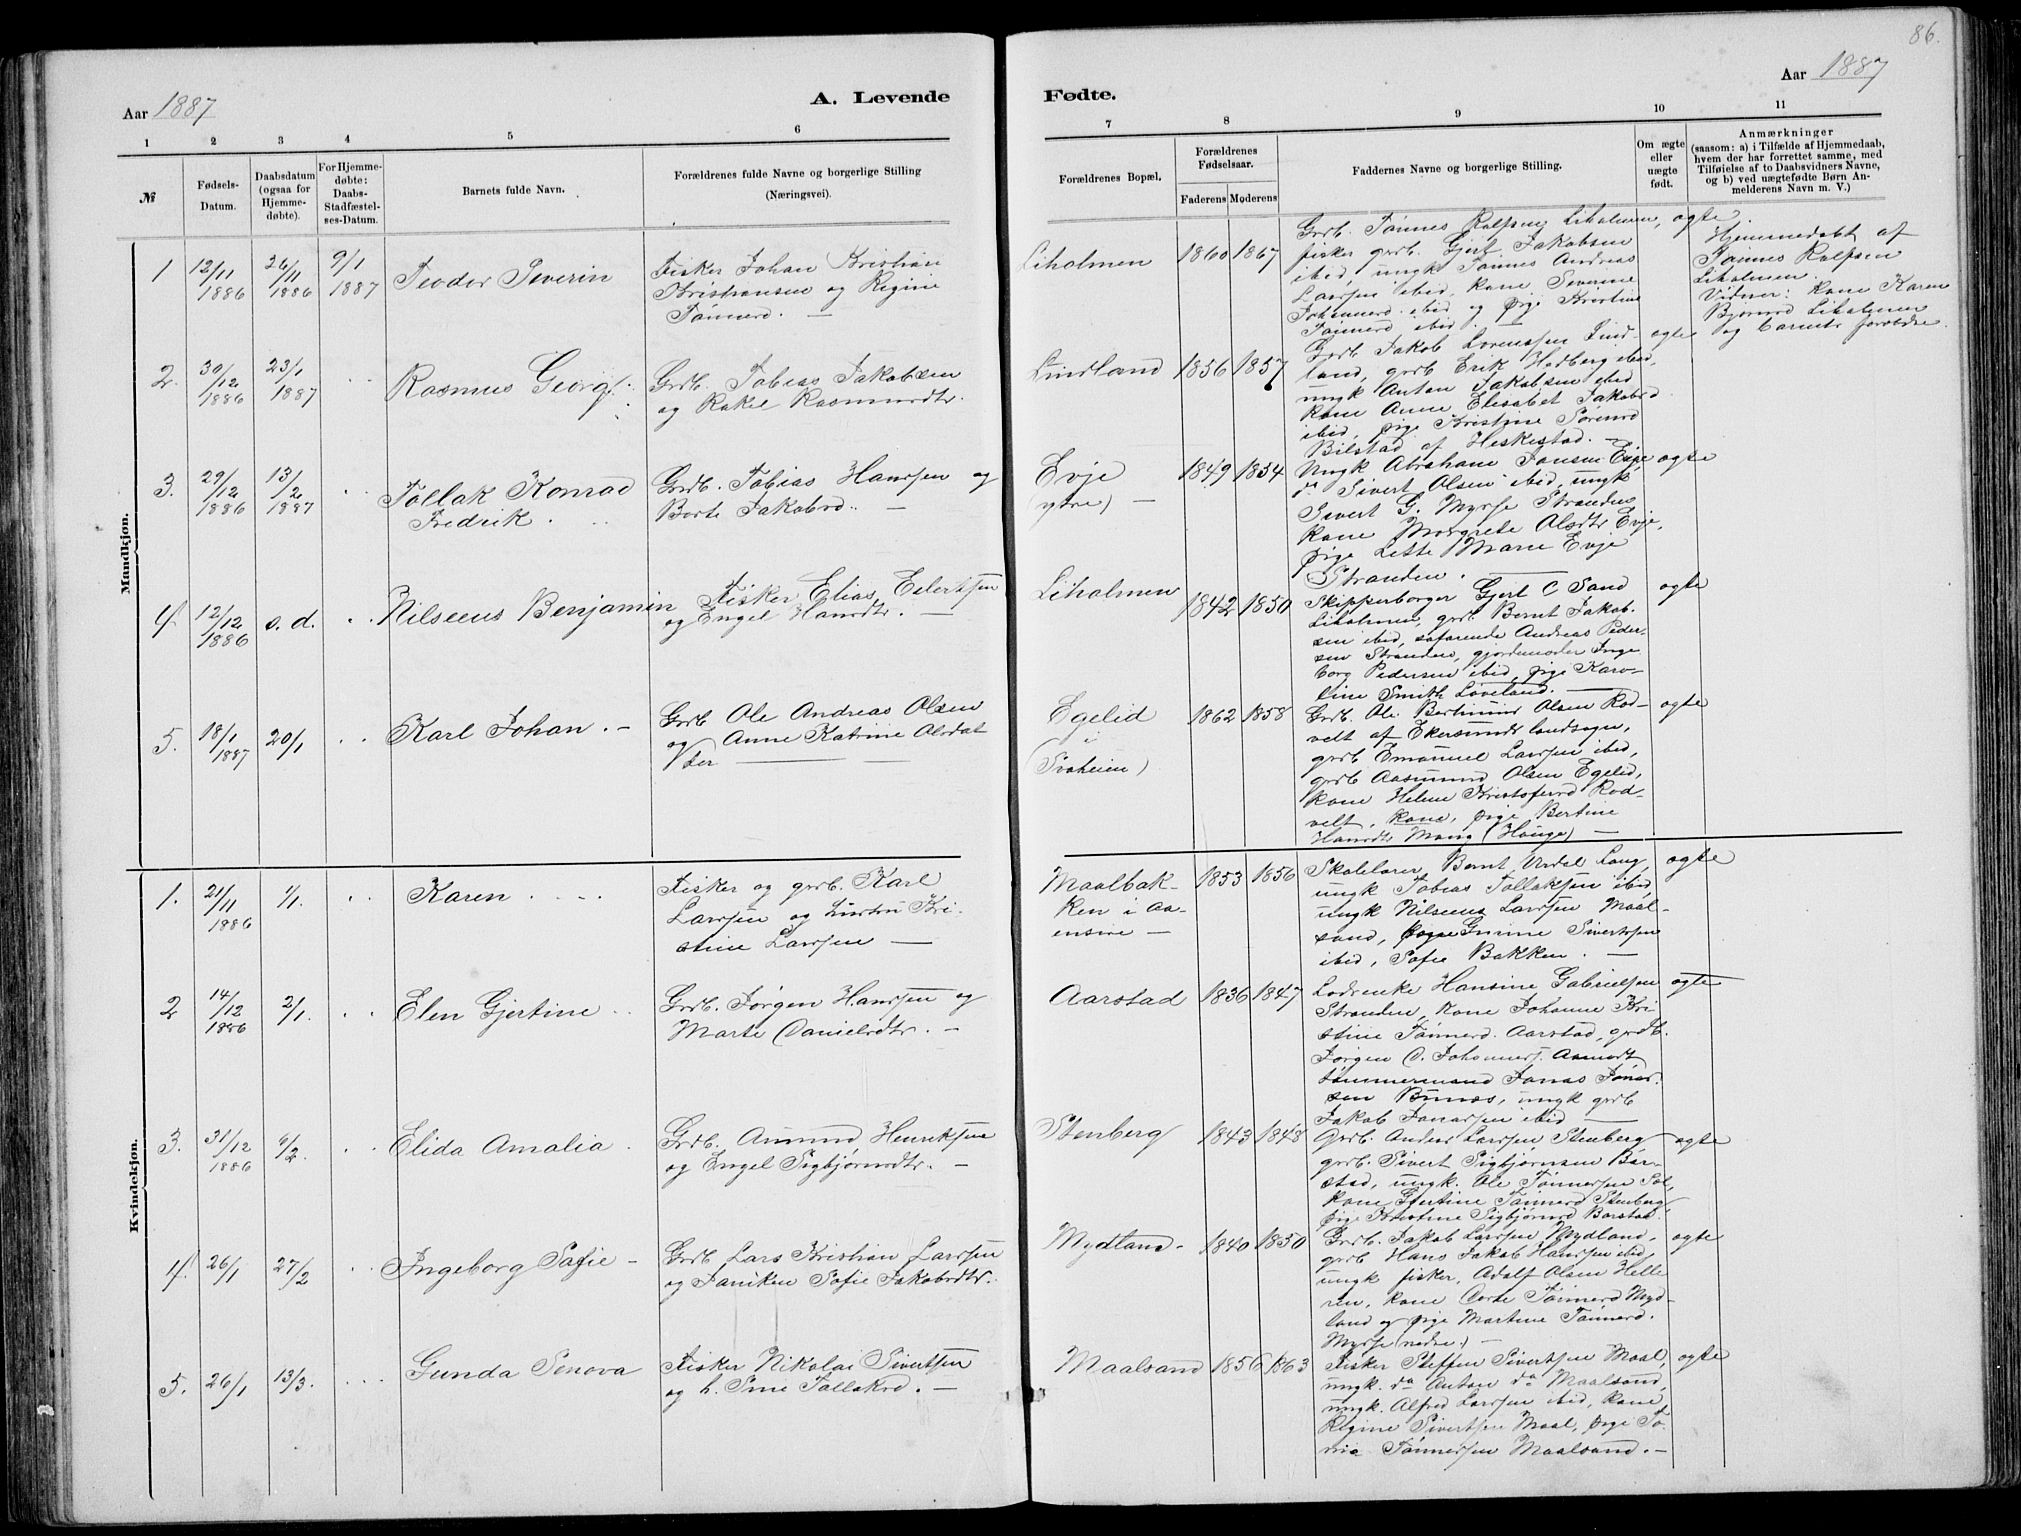 86.
Aar 1887
A. Levende
Fødte.
Aar 1887
1 2 3 4 5 6 7 8 9 10 11
№
Fødsels-
Datum.
Daabsdatum
(ogsaa for
Hjemme-
døbte).
For Hjemme-
døbte:
Daabs-
Stadfæstel-
ses-Datum.
Barnets fulde Navn.
Forældrenes fulde Navne og borgerlige Stilling
(Næringsvei).
Forældrenes Bopæl.
Forældrenes
Fødselsaar.
Faderens Moderens
Faddernes Navne og borgerlige Stilling.
Om ægte
eller
uægte
født.
Anmærkninger
(saasom: a) i Tilfælde af Hjemmedaab,
hvem der har forrettet samme, med
Tilføielse af to Daabsvidners Navne,
og b) ved uægtefødte Børn An-
melderens Navn m. V.)
Mandkjøn.
1 12/11 1886 26/11 1886 9/1 1887 Teodor Severin
Fisker Johan Kristian
Kristiansen og Regine
Tønnesd. —
Liholmen 1860 1867
Grdb. Tønnes Rolfsen Liholmen,
fisker grdb. Gjert Jakobsen
ibid, ungk Tønnes Andreas
Larsen ibid, kone Severine
Johannesd. ibid og pige Kristine
Tønnesd. ibid.
ægte
Hjemmedøbt af
Tønnes Rolfsen
Liholmen.
Vidner: kone Karen
Bjørnsd Liholmen
og barnets forældre.
2. 30/12 1886 23/1 1887 Rasmus Georg
Grdb. Tobias Jakobsen
og Rakel Rasmusdtr.
Lindland 1856 1857
Grdb. Jakob Lorenssen Lind-
land, grdb Erik Hedberg ibid,
ungk Anton Jakobsen ibid
kone Anne Elisabet Jakobsd
ibid, pige Kristine Sørensd
Bilstad af Heskestad. —
ægte
3. 29/12 1886 13/2 1887 Tollak Konrad
Fredrik.
Grdb. Tobias Hanssen og
Berte Jakobsd. —
Evje
(ytre) —
1849 1854
Ungk Abraham Jansen Evje
do Sivert Olsen ibid, ungk
Sivert G. Myrse Stranden
kone Margrete Olsdtr Evje,
pige Lette Marie Evje
Stranden. —
ægte
4. 12/12 1886 s. d. Nilseeus Benjamin
Fisker Elias Eilertsen
og Engel Hansdtr. —
Liholmen 1842 1850
Skipperborger Gjert C Sand
Liholmen, grdb. Bernt Jakob-
sen ibid, søfarende Andreas Peder-
sen Stranden, gjordemoder Inge
borg Pedersen ibid, pige Karo-
line Smith Løveland. —
ægte
5. 18/1 1887 20/1 Karl Johan. —
Grdb Ole Andreas Olsen
og Anne Katrine Olsdat
ter —
Egelid
i
(Svaheien)
1862 1858
Grdb. Ole Bertinius Olsen Rod-
velt af Ekersunds landsogn,
grdb Emanuel Larssen ibid,
grdb Aasmund Olsen Egelid,
kone Helene Kristofersd Rod-
velt, kone, pige Bertine
Hansdtr Mong (Hauge) —
ægte
Kvindekjøn.
1. 21/11 1886 1/1. Karen
Fisker og grdb. Karl
Larssen og hustru Kri-
stine Larssen —
Maalbak-
ken i Aa-
ensire —
1853 1856
Skolelærer Bernt Urdal Log,
ungk Tobias Tollaksen ibid,
ungk Nilseeus Larssen Maal-
sand, pigerne Gurine Sivertsen
ibid, Sofie Bakken. —
ægte
2 14/12 1886 2/1. Elen Gjertine
Grdb. Jørgen Hanssen og
Marte Danielsdtr. —
Aarstad 1836 1847
Lodsenke Hansine Gabrielsen
Stranden, kone Johanne Kri
stine Tønnesd. Aarstad, grdb.
Jørgen C. Johannes. Aamodt
tømmermand Jonas Jonas-
sen Bunæs, ungk grdb
Jakob Jonassen ibid —
ægte
3. 31/12 1886 6/2. Elida Amalia
Grdb. Amund Henriksen
og Engel Sigbjørnsdtr. —
Stenberg 1843 1848
Grdb. Anders Larssen Stenberg
grdb. Sivert Sigbjørnsen Bar-
stad, ungk. Ole Tønnessen Sol,
kone Gjertine Tønnesd Stenberg
pige Kristine Sigbjørnsd Barstad.
ægte
4. 26/1 27/2 Ingeborg Sofie —
Grdb Lars Kristian Larssen
og Janiken Sofie Jakobsdtr.
Mydland. 1840 1850
Grdb. Jakob Larssen Mydland,
grdb Hans Jakob Hanssen ibid,
ungk fisker, Adolf Olsen Helle
ren, kone Dorte Tønnesd Myd-
land og pige Martine Tønnesd.
Myrse (nedre) —
ægte
5. 26/1 13/3. Gunda Senova
Fisker Nikolai Sivertsen
og h. Sine Tollaksd. —
Maalsand 1856 1863
Fisker Steffen Sivertsen Maal,
ungk. do Anton do Maalsand,
ungk. Alfred Larssen ibid, kone
Regine Sivertsen Maal, pige To-
nia Tønnessen Maalsand. —
ægte